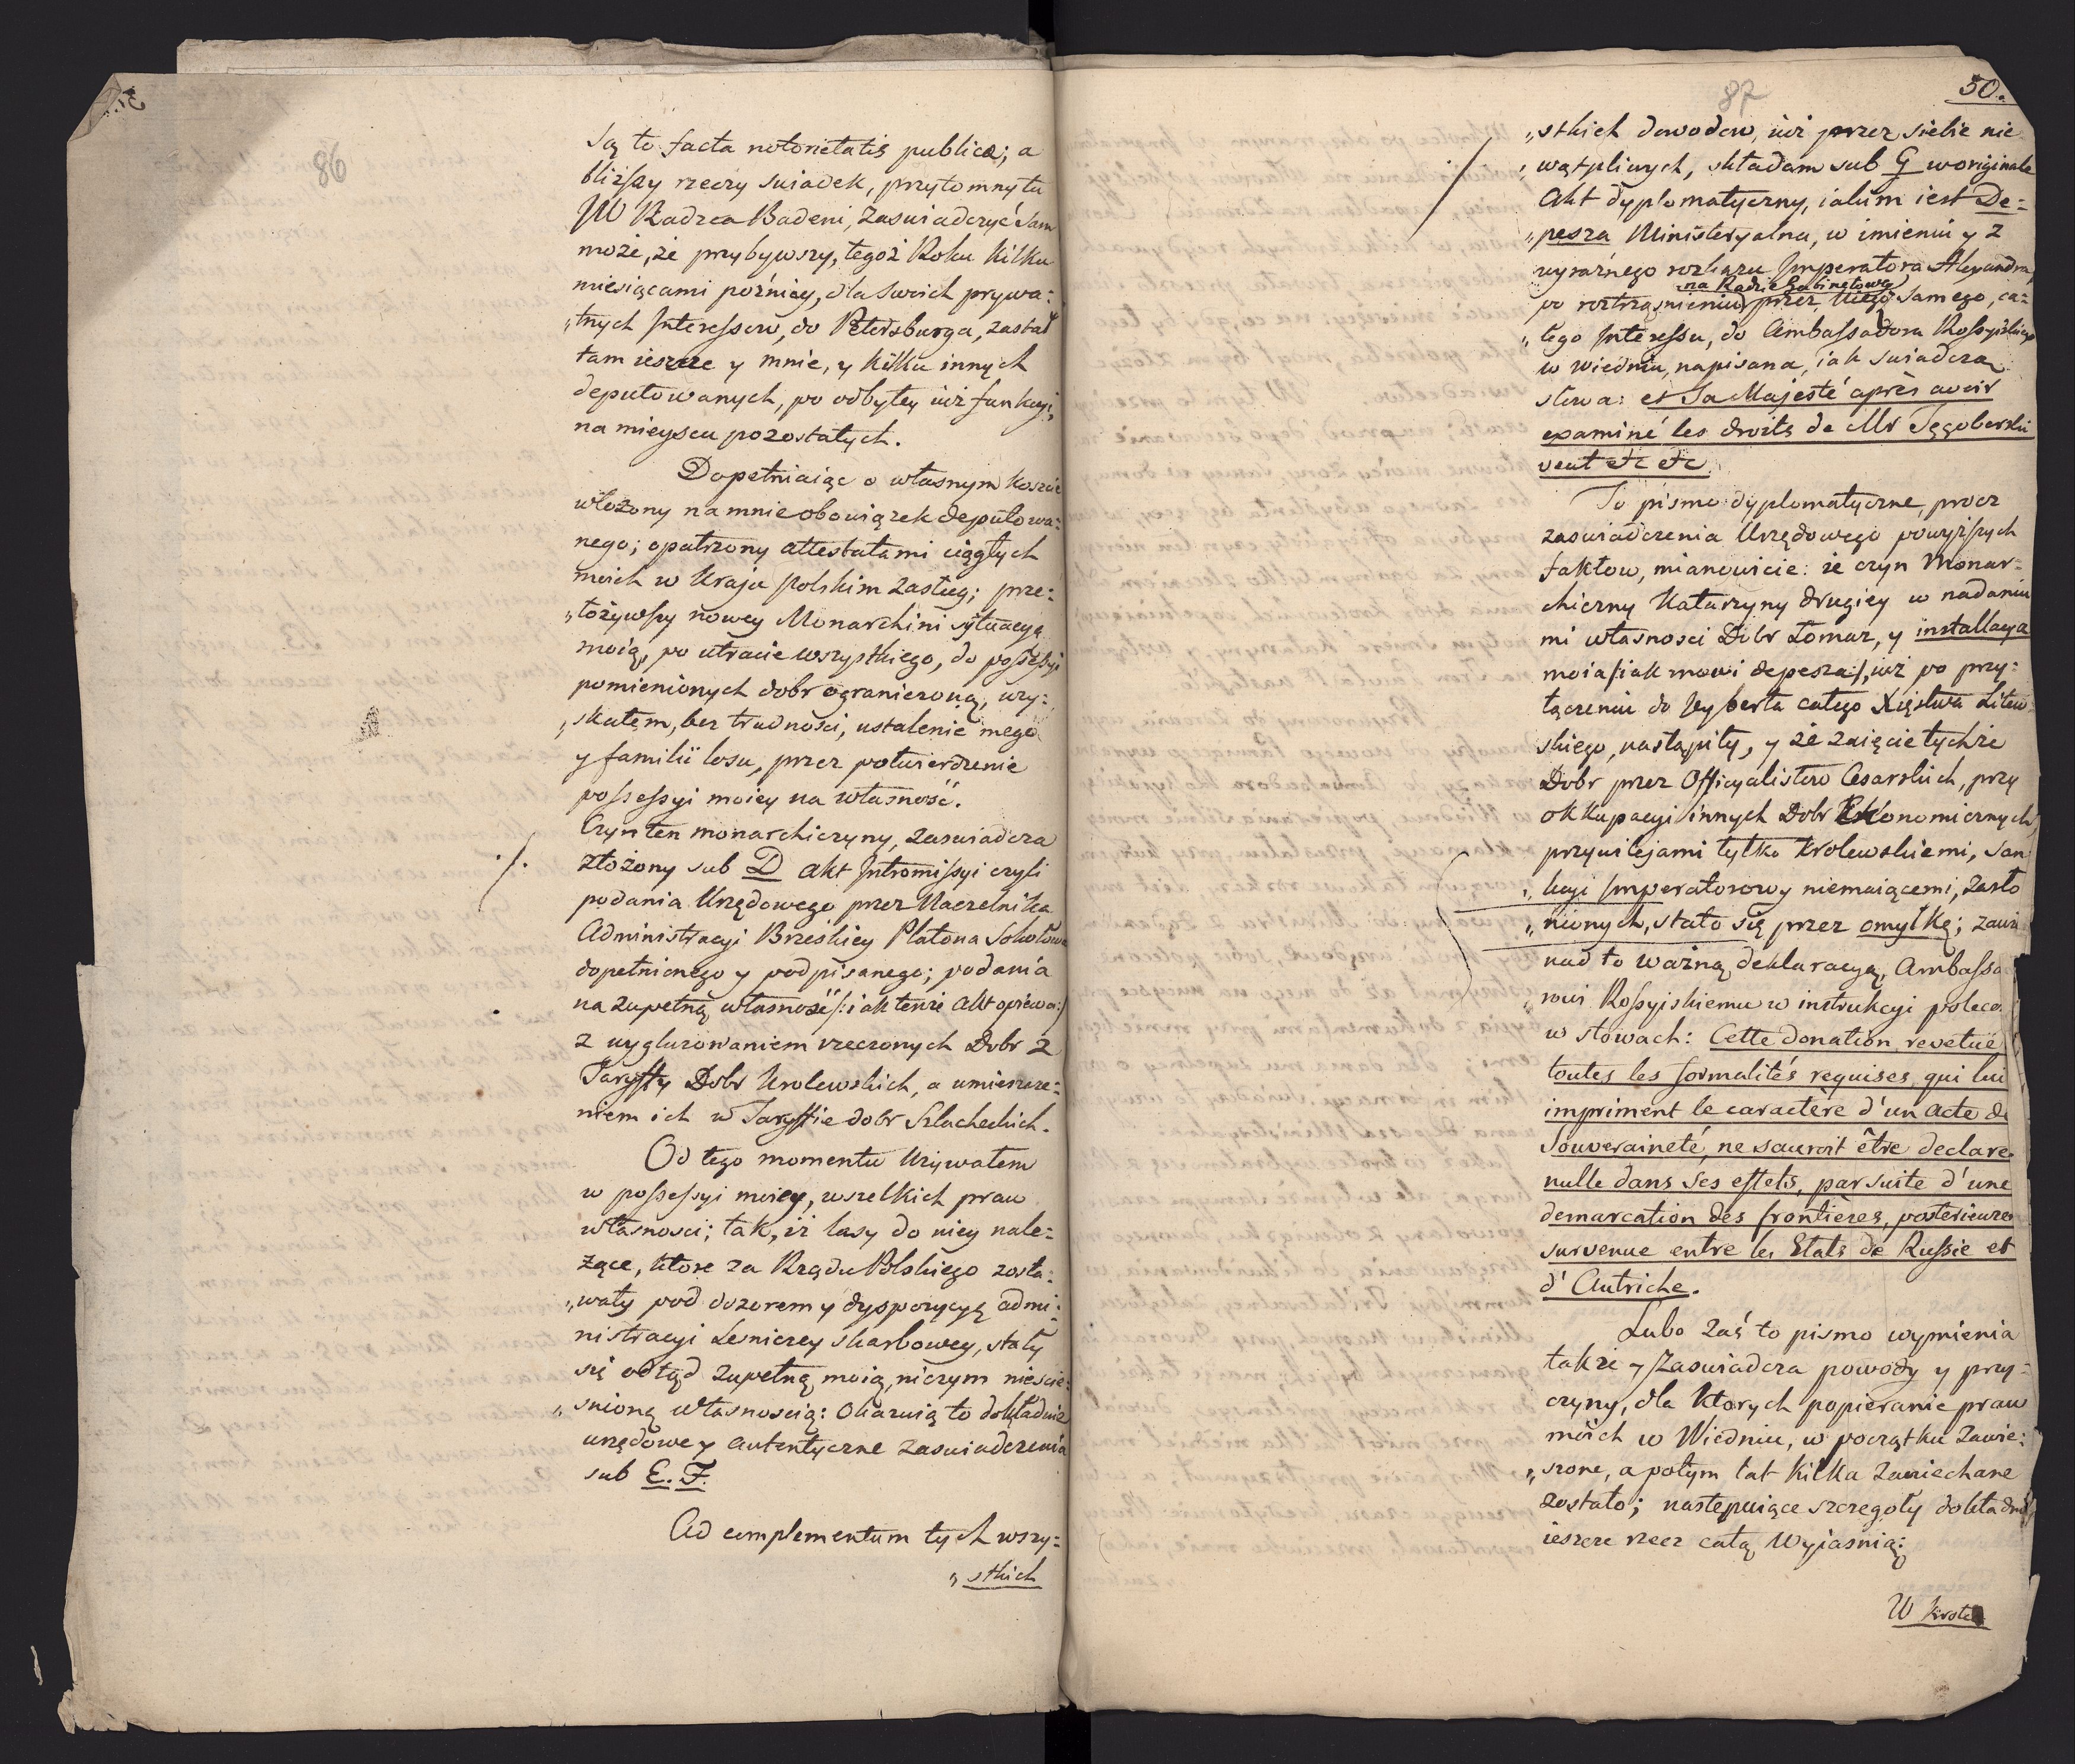 86
Są to facta notorietatis publicæ; a
bliższy rzeczy swiadek, przytomny tu
JW Radzca Badeni, zaswiadczyć sam
może, że przybywszy, tegoż Roku kilku
miesiącami pozniey, dla swoich prywa:
„tnych Interessow, do Petersburga, zastał
tam ieszcze y mnie, y kilku innych
deputowanych, po odbytey iuż funkcyi,
na mieyscu pozostałych.
Dopełniaiąc o własnym koszcie
włożony na mnie obowiązek deputowa:
nego; opatrzony attestatami ciągłych
moich w Kraju polskim zasług; prze:
„łożywszy nowey Monarchini sytuacyą
moią, po utracie wszystkiego, do possessyi
pomienionych dobr ograniczoną, uzy:
„skałem, bez trudności, ustalenie mego
y familii losu, przez potwierdzenie
possessyi moiey na własność.
Czyn ten monarchiczny, zaswiadcza
./. złożony sub D akt Intromissyi czyli
podania Urzędowego przez Naczelnika
Administracyi Brzeskiey Platona Sokołowa
dopełnionego y podpisanego; podania
na zupełną własność /: iak tenże akt opiewa :/
z wygluzowaniem rzeczonych Dobr z
Taryffy Dobr Krolewskich, a umieszcze:
niem ich w Taryffie dobr Szlacheckich.
Od tego momentu Używałem
w possessyi moiey, wszelkich praw
własnosci; tak, iż lasy do niey nale:
żące, ktore za Rządu Polskiego zosta:
„wały pod dozorem y dyspozycyą admi:
nistracyi Lesniczey skarbowey, stały
się odtąd zupełną moią, niczym niescie:
„snioną własnoscią: Okazuią to dokładnie
urzędowe y autentyczne zaswiadczenia
sub E. F.
Ad complementum tych wszy:
„stkich
87
50.
„stkich dowodow, iuż przez siebie nie
„wątpliwych, składam sub G w originale
Akt dyplomatyczny, iakim iest De:
„pesza Ministeryalna, w imieniu y z
wyraźnego rozkazu Imperatora Alexandra,
na Radzie Gabinetowey
po roztrząsnieniu przez Niego samego, ca:
„łego Interessu, do Ambassadora Rossyiskiego
w Wiedniu, napisana, iak swiadczą
słowa: et Sa Majesté après avoir
examiné les droits de Mr Tęgoborski
veut etc etc.
To pismo dyplomatyczne, procz
zaswiadczenia Urzędowego powyższych
faktow, mianowicie: że czyn Monar:
chiczny Katarzyny drugiey w nadaniu
mi własnosci Dobr Łomaz, y installacya
moia /: iak mowi depesza :/, iuż po przy:
łączeniu do Jey berła całego Xięstwa Litew:
skiego, nastąpiły, y że zaięcie tychże
Dobr przez Officyalistow Cesarskich, przy
okkupacyi innych Dobr Ekonomicznych,
przywilejami tylko krolewskiemi, san:
„kcyi Imperatorowy niemaiącemi, zasło
„nionych, stało się przez omyłkę; zawi
nad to ważną deklaracyą, Ambassa
„rowi Rossyiskiemu w instrukcyi poleco
w słowach: Cette donation, revetüe
toutes les formalités requises, qui lui
impriment le caractère d'un acte de
Souveraineté, ne sauroit être declare
nulle dans ses effets, par suite d'une
demarcation des frontieres, posterieure
survenue entre les Etats de Russie et
d'Autriche.
Lubo zaś to pismo wymienia
także y zaswiadcza powody y przy:
czyny, dla ktorych popieranie praw
moich w Wiedniu, w początku zawie:
„szone, a potym lat kilka zaniechane
zostało; następuiące szczegoły dokładniey
ieszcze rzecz całą wyjasnią:
W krotce